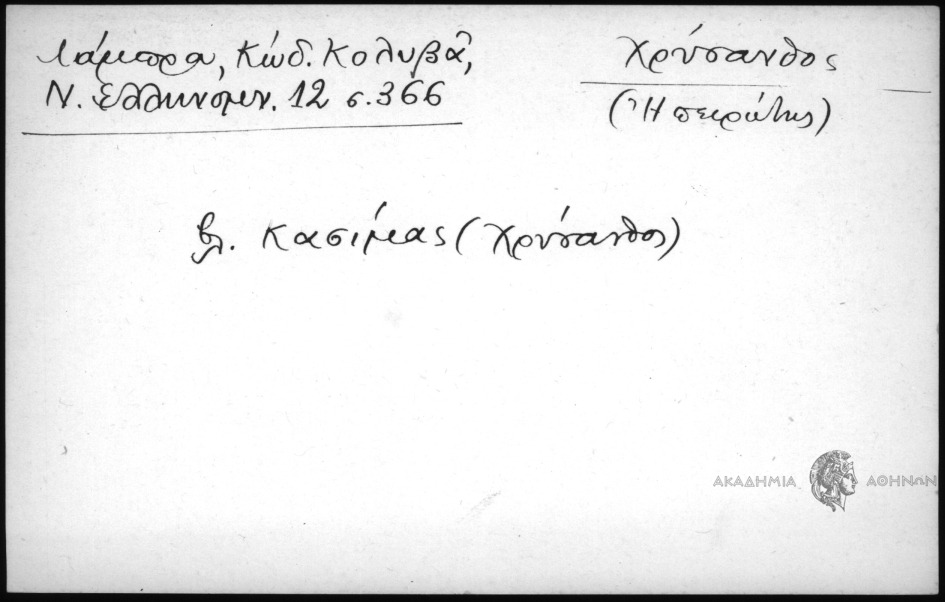 Λάμπρου, Κώδ. Κολυβᾶ,
Ν. Ἑλληνομν. 12 σ. 366
Χρύσανθος
(Ἠπειρώτης)
βλ. Κασίμας (Χρύσανθος)
ΑΚΑΔΗΜΙΑ ΑΘΗΝΩΝ